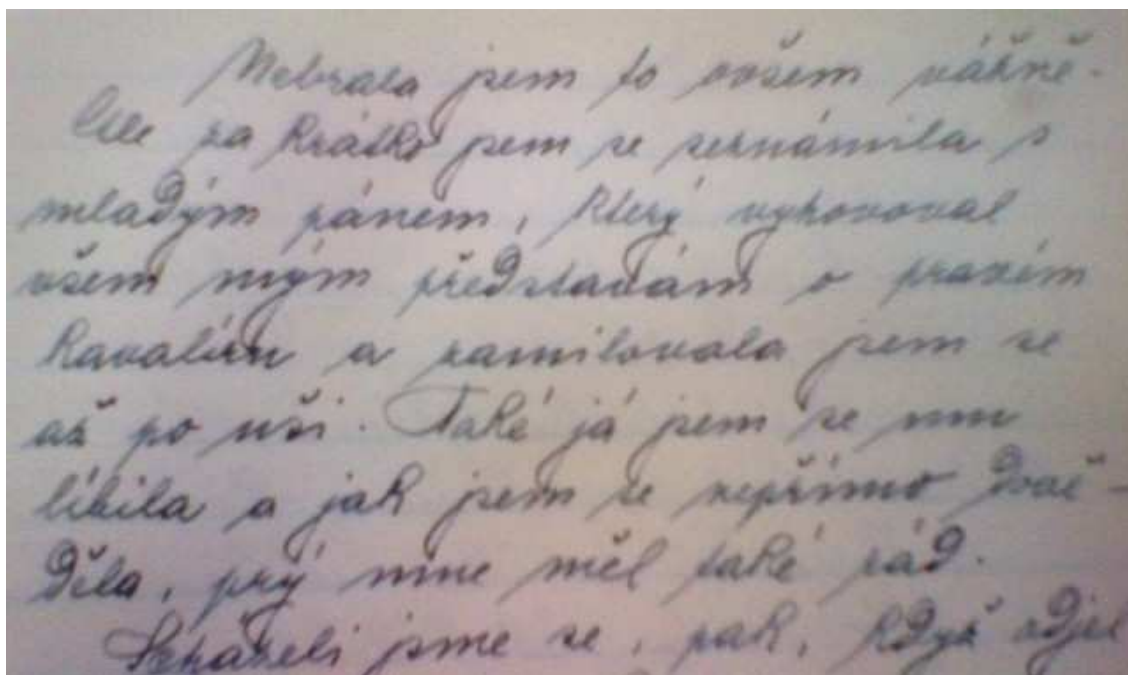 Nebrala jsem to ovšem vážně.
Ale za krátko jsem se seznámila s
mladým pánem, který vyhovoval
všem mým představám o pravém
kavalíru a zamilovala jsem se
až po uši. Také já jsem se mu
líbila a jak jsem se nepřímo dově-
děla, prý mne měl také rád.
Scházeli jsme se, pak, když odjel